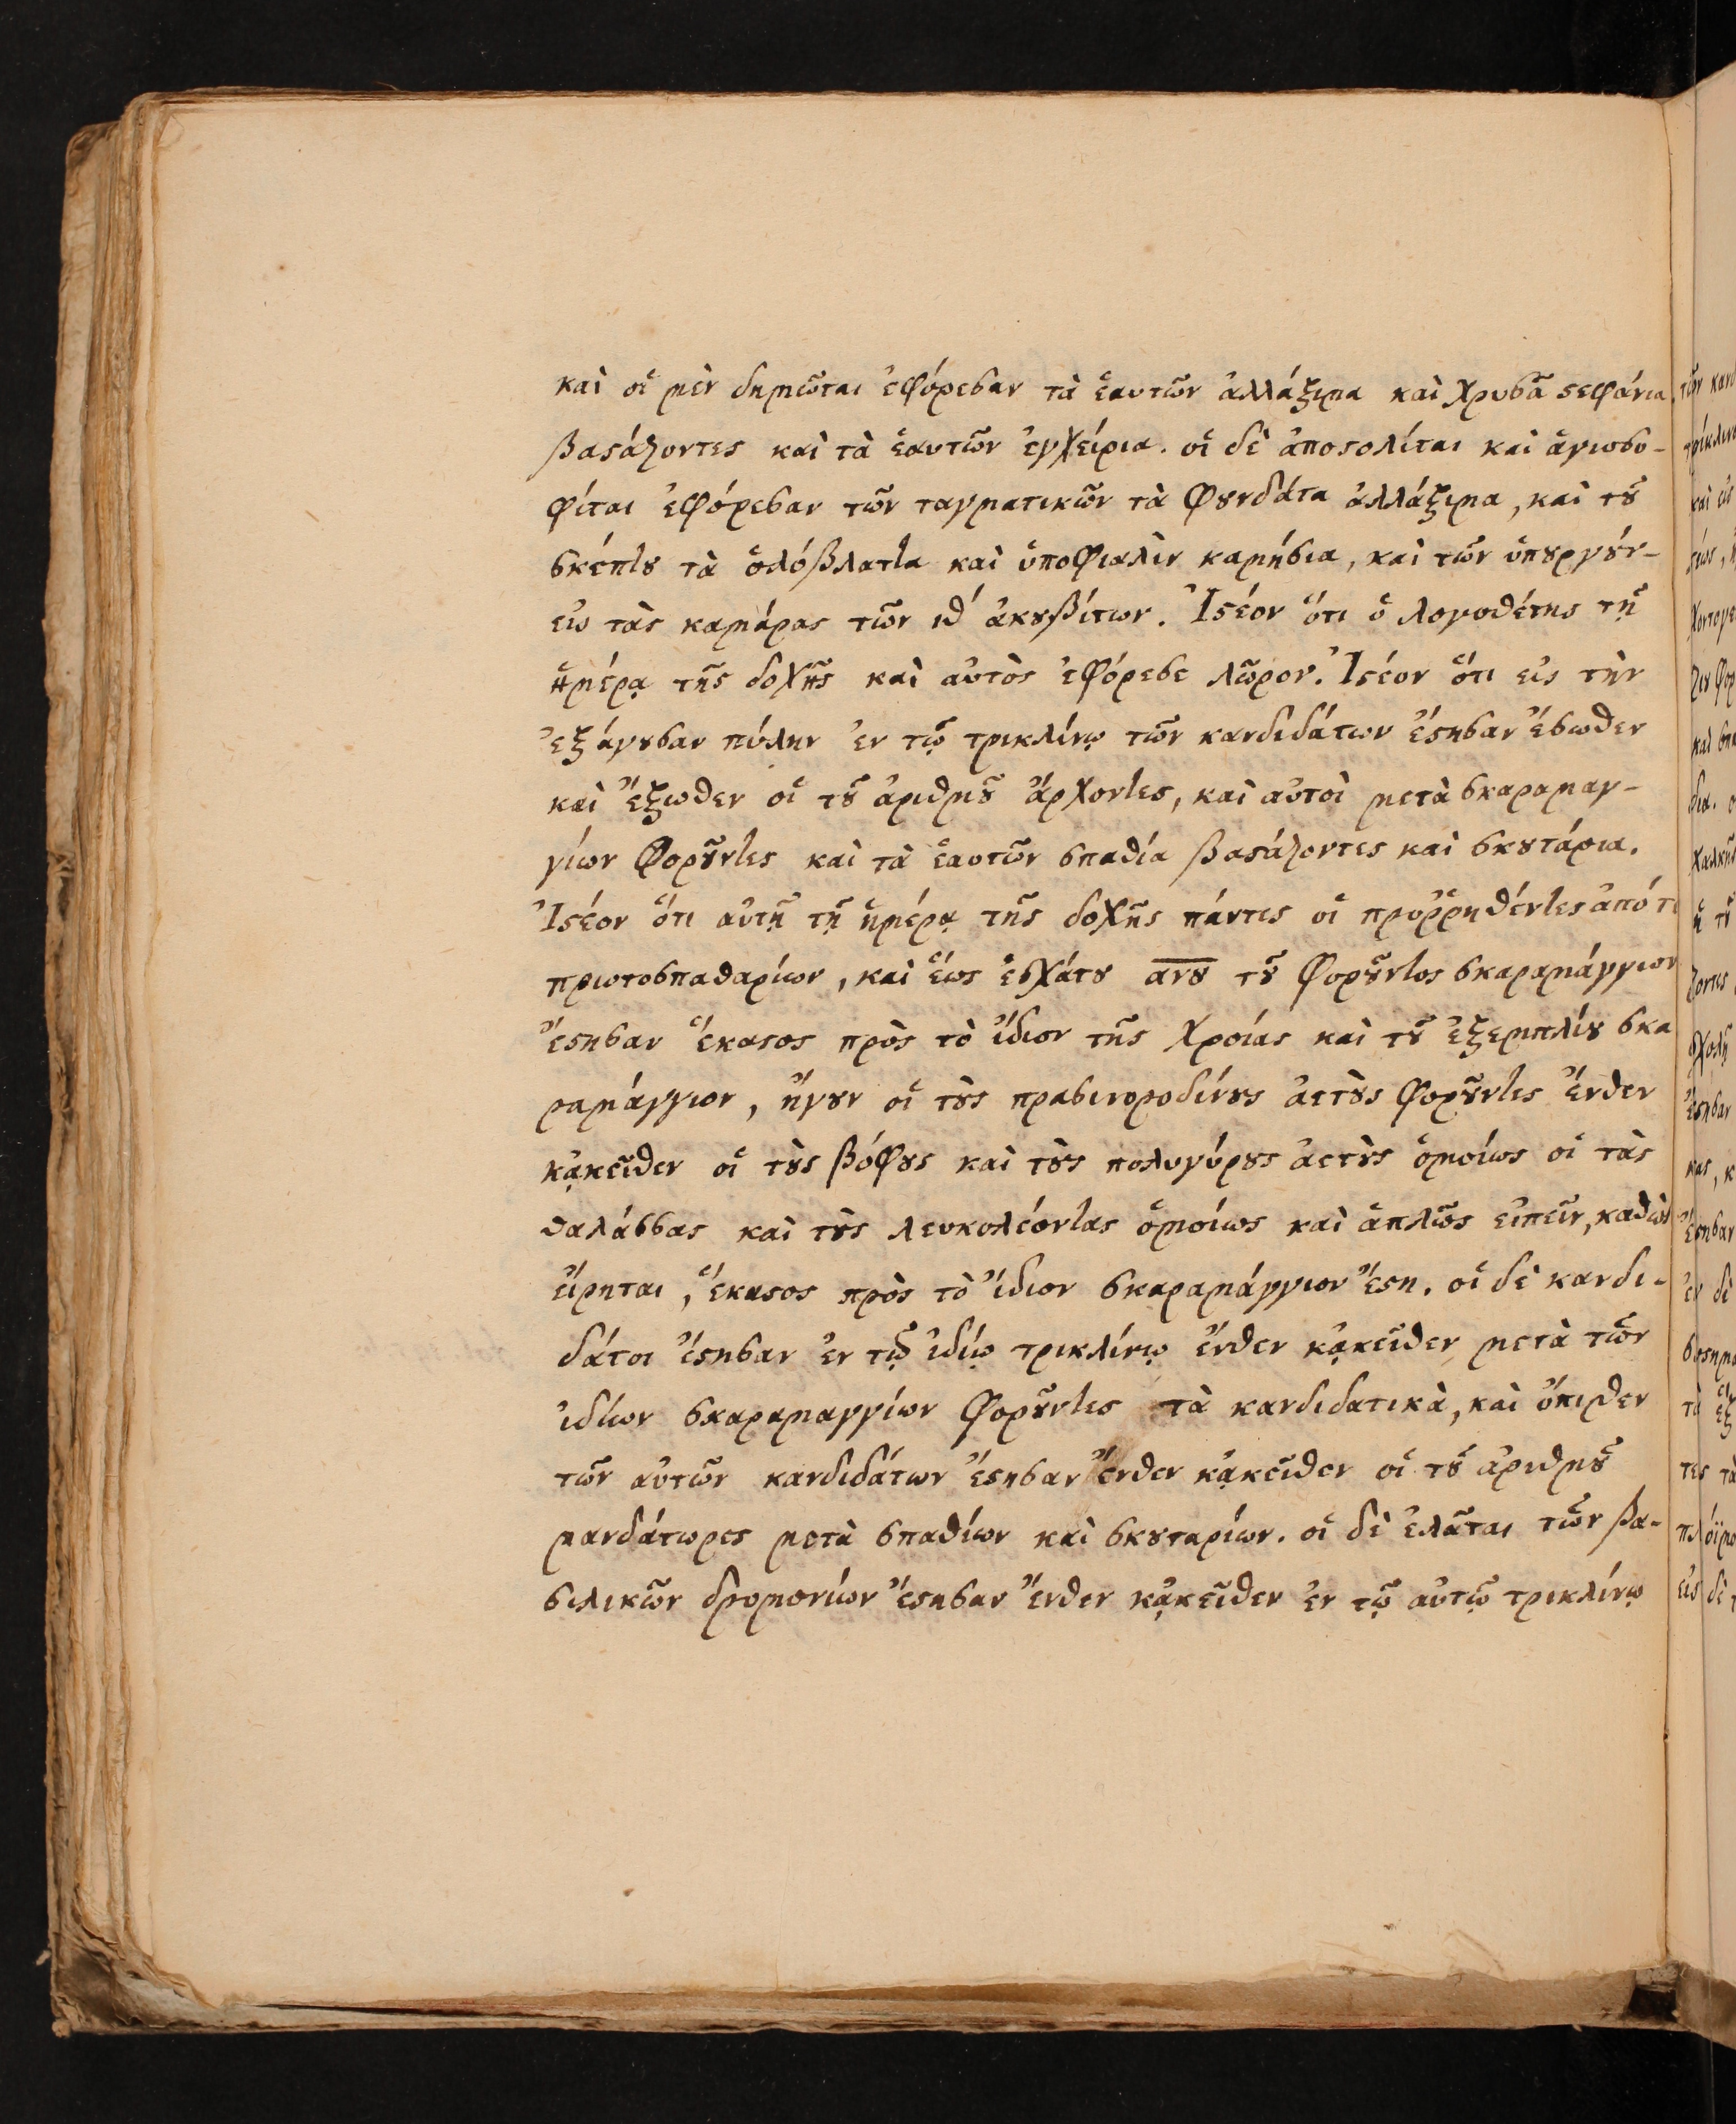 καὶ οἱ μὲν δημῶται ἐφόρεσαν τὰ ἑαυτῶν ἀλλάξιμα καὶ χρυσᾶ ϛεφάνια,
βαϛάζοντες καὶ τὰ ἑαυτῶν ἐγχείρια. οἱ δὲ ἀποϛολίται καὶ ἁγιοσο-
φίται ἐφόρεσαν τῶν ταγματικῶν τὰ φȣνδάτα ἀλλάξιμα, καὶ τȣ͂
σκέπτȣ τὰ ὁλόβλαττα καὶ ὑποφιαλὶν καμήσια, καὶ τῶν ὑπȣργȣ́ν-
εἰς τὰς καμάρας τῶν ιθ´ ἀκȣβίτων. Ἰϛέον ὅτι ὁ λογοθέτης τῇ
ἡμέρᾳ τῆς δοχῆς καὶ αὐτὸς ἐφόρεσε λῶρον. Ἰϛέον ὅτι εἰς τὴν
ἐξάγȣσαν πύλην ἐν τῷ τρικλίνῳ τῶν κανδιδάτων ἔϛησαν ἔσωθεν
καὶ ἔξωθεν οἱ τȣ͂ ἀριθμȣ͂ ἄρχοντες, καὶ αὐτοὶ μετὰ σκαραμαγ-
γίων φορȣ͂ντες καὶ τὰ ἑαυτῶν σπαθία βαϛάζοντες καὶ σκȣτάρια.
Ἰϛέον ὅτι αὐτῇ τῇ ἡμέρᾳ τῆς δοχῆς πάντες οἱ προῤῥηθέντες ἀπό τε
πρωτοσπαθαρίων, καὶ ἕως ἐσχάτȣ ανȣ τȣ͂ φορȣ͂ντος σκαραμάγγιον
ἔϛησαν ἕκαϛος πρὸς τὸ ἴδιον τῆς χροίας καὶ τȣ͂ ἐξεμπλίȣ σκα
ραμάγγιον, ἤγȣν οἱ τȣ̀ς πρασινοροδίνȣς ἀετȣ̀ς φορȣ͂ντες ἔνθεν
κᾀκεῖθεν οἱ τȣ̀ς βόφȣς καὶ τȣ̀ς πολυγύρȣς ἀετȣ̀ς ὁμοίως οἱ τὰς
θαλάσσας καὶ τȣ̀ς λευκολέοντας ὁμοίως καὶ ἁπλῶς εἰπεῖν, καθὼς
εἴρηται, ἕκαϛος πρὸς τὸ ἴδιον σκαραμάγγιον ἔϛη. οἱ δὲ κανδι-
δάτοι ἔϛησαν ἐν τῷ ἰδίῳ τρικλίνῳ ἔνθεν κᾀκεῖθεν μετὰ τῶν
ἰδίων σκαραμαγγίων φορȣ͂ντες τὰ κανδιδατικὰ, καὶ ὄπιθεν
τῶν αὐτῶν κανδιδάτων ἔϛησαν ἔνθεν κᾀκεῖθεν οἱ τȣ͂ ἀριθμȣ͂
μανδάτωρες μετὰ σπαθίων καὶ σκȣταρίων. οἱ δὲ ἐλᾶται τῶν βα-
σιλικῶν δρομονίων ἔϛησαν ἔνθεν κᾀκεῖθεν ἐν τῷ αὐτῷ τρικλίνῳ